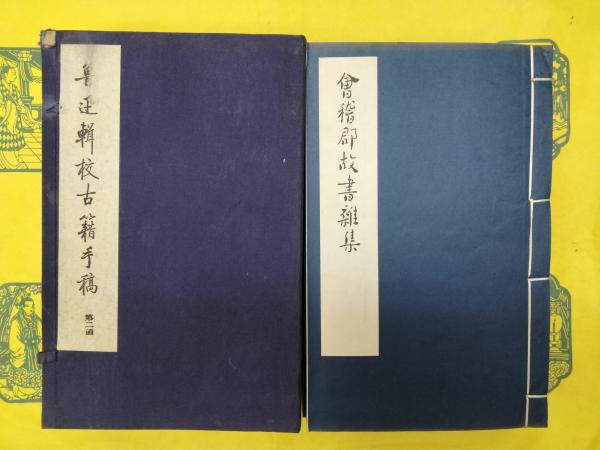 鲁迅輯校古籍手稿
第二函
會稽郡故書雜集